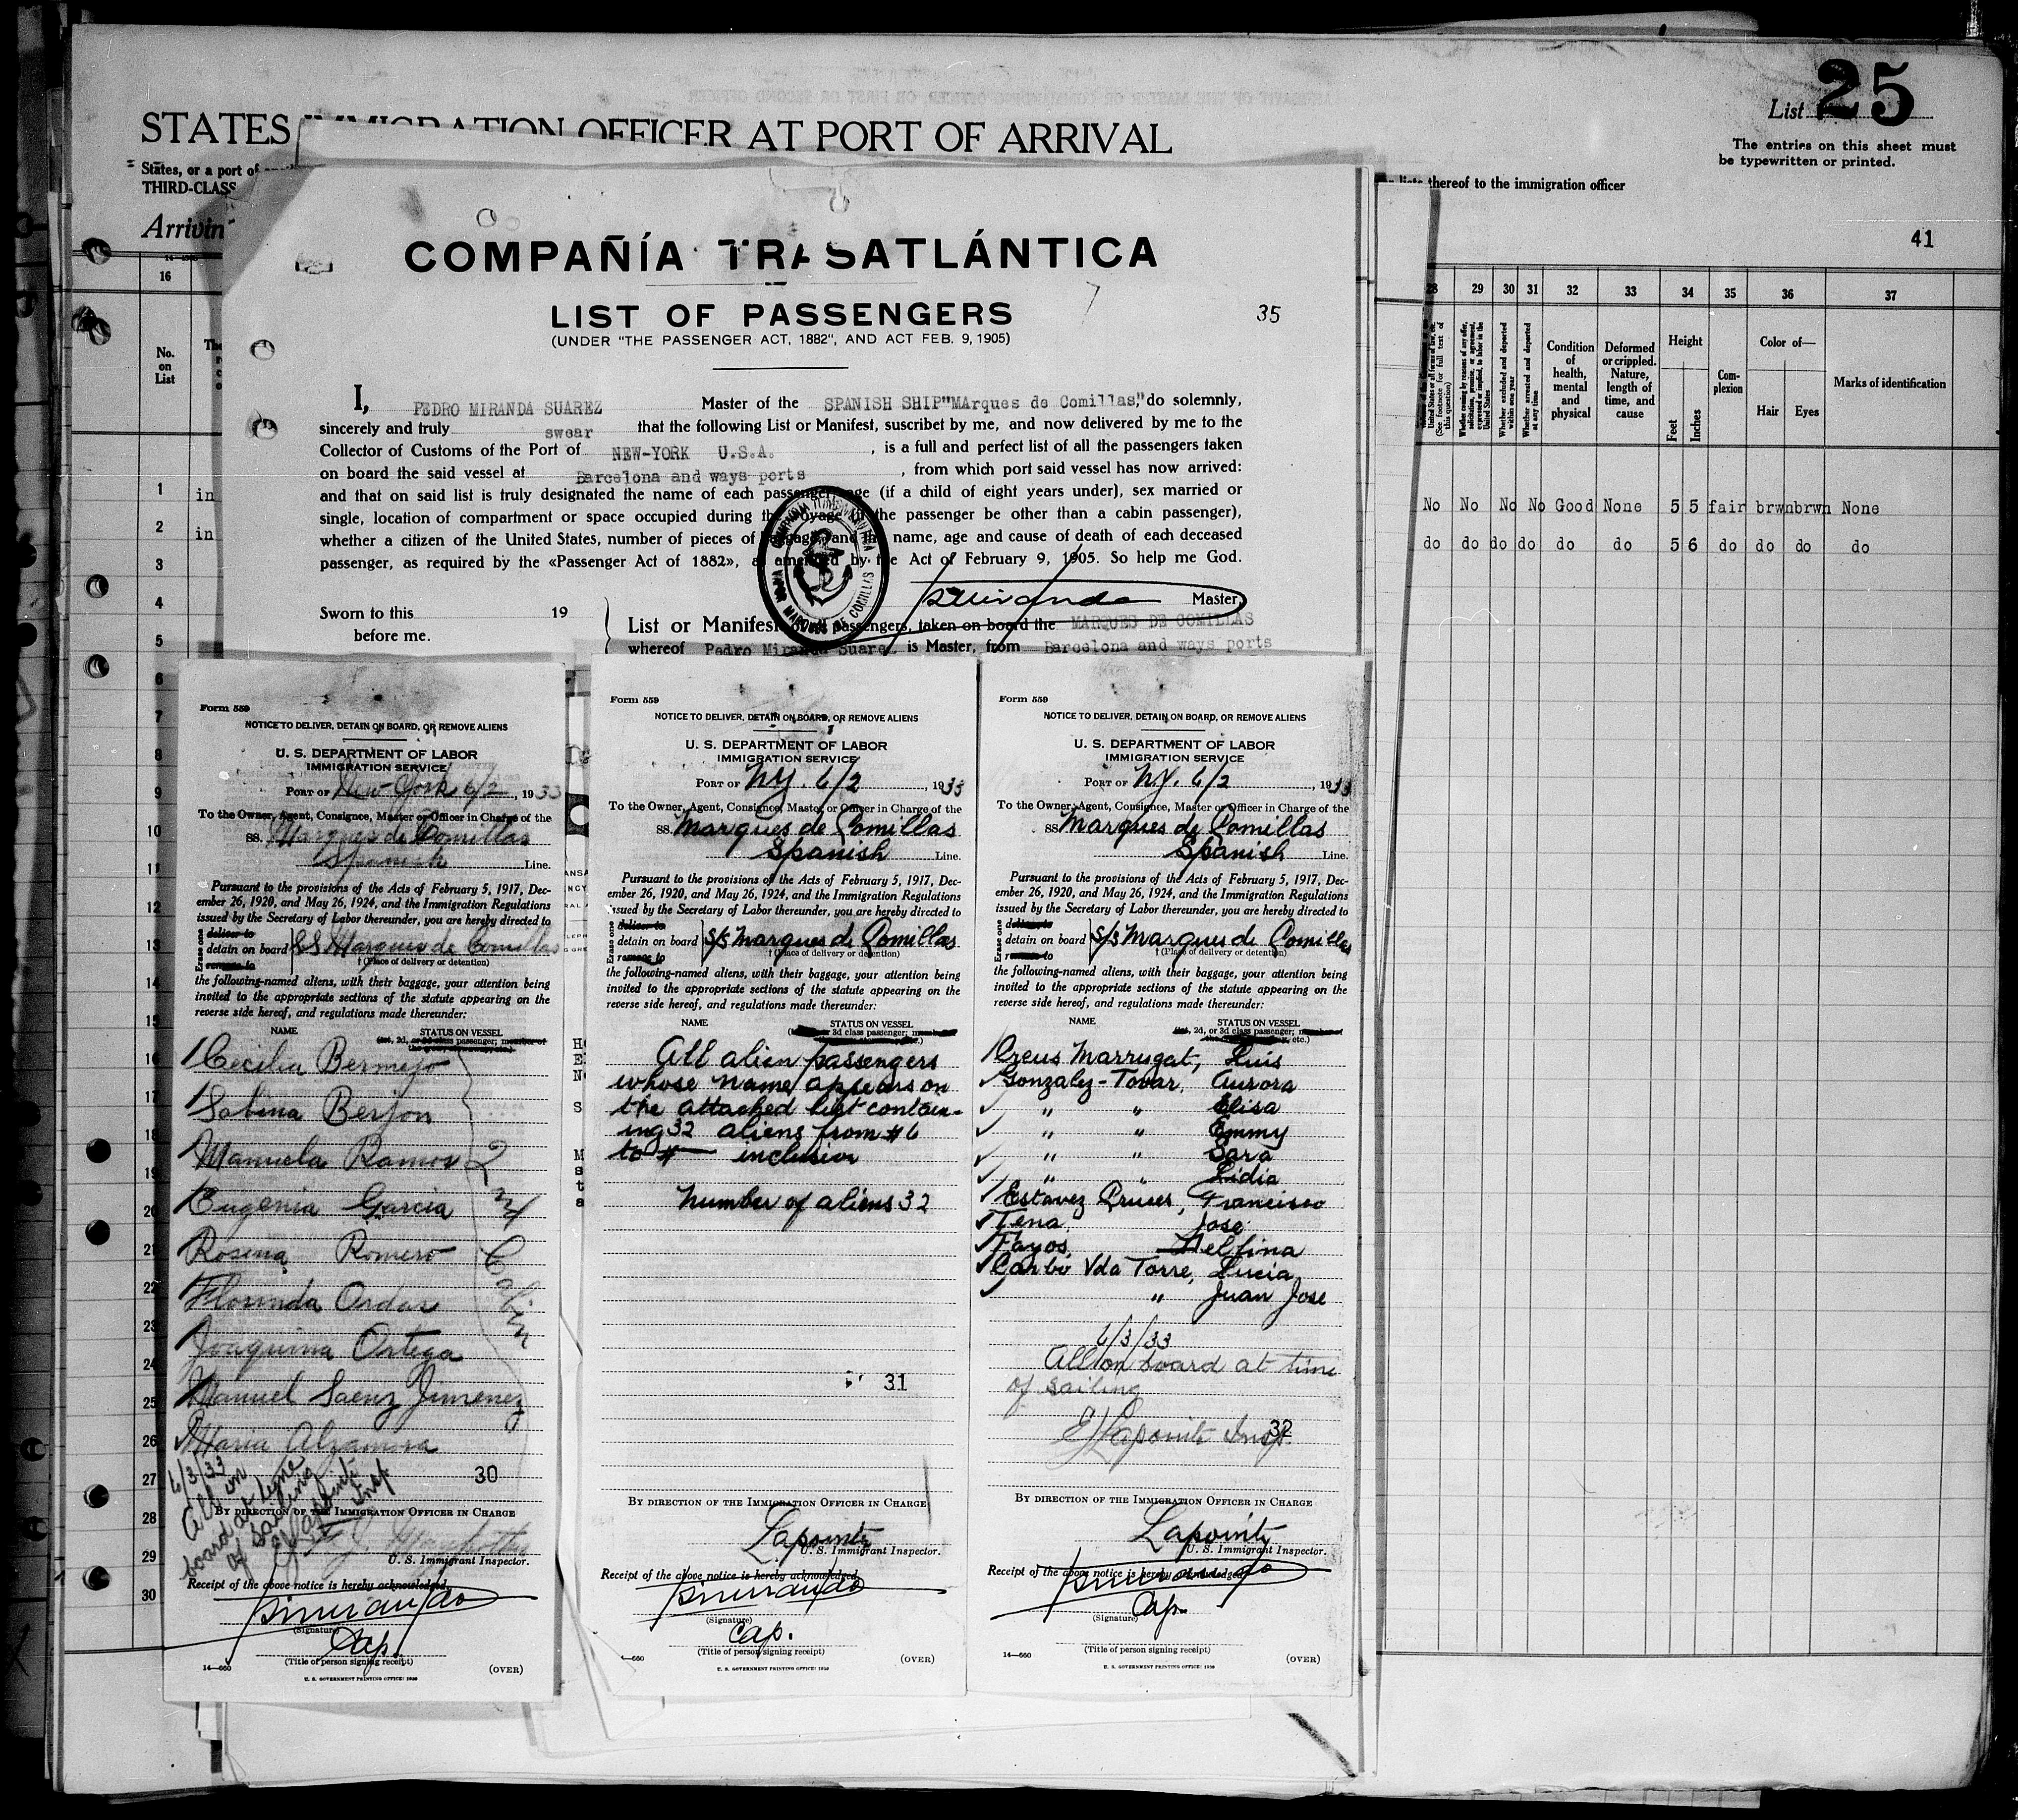 STATES IMMIGRATION OFFICER AT PORT OF ARRIVAL
List 25
The entries on this sheet must
be typewritten or printed.
States, or a port of
THIRD-CLASS
lists thereof to the immigration officer
Arrivin
41
16
No.
on
List
28 29 30 31 32 33 34 35 36 37
(See footnote for full text of
this question)
Whether excluded and deported
within one year
Whether arrested and deported
at any time
Condition
of
health,
mental
and
physical
Deformed
or crippled.
Nature,
length of
time, and
cause
Height
Feet
Inches
Com-
plexion
Color of—
Hair
Eyes
Marks of identification
No No No No Good None 5 5 fair brwn brwn None
do do do do do do 5 6 do do do do
1 in
2 in
3
4
5
6
7
8
9
10
11
12
13
14
15
16
17
18
19
20
21
22
23
24
25
26
27
28
29
30
COMPAÑÍA TRASATLÁNTICA
LIST OF PASSENGERS
(UNDER "THE PASSENGER ACT, 1882", AND ACT FEB. 9, 1905)
35
I, PEDRO MIRANDA SUAREZ Master of the SPANISH SHIP"MArques de Comillas," do solemnly,
sincerely and truly swear that the following List or Manifest, suscribet by me, and now delivered by me to the
Collector of Customs of the Port of NEW-YORK U.S.A. , is a full and perfect list of all the passengers taken
on board the said vessel at Barcelona and ways ports , from which port said vessel has now arrived:
and that on said list is truly designated the name of each passenger, age (if a child of eight years under), sex married or
single, location of compartment or space occupied during the voyage (if the passenger be other than a cabin passenger),
whether a citizen of the United States, number of pieces of baggage, and the name, age and cause of death of each deceased
passenger, as required by the «Passenger Act of 1882», as amended by the Act of February 9, 1905. So help me God.
PMiranda Master,
Sworn to this 19
before me.
List or Manifest of passengers, taken on board the MARQUES DE COMILLAS
whereof Pedro Miranda Suarez is Master, from Barcelona and ways ports
Form 559
NOTICE TO DELIVER, DETAIN ON BOARD, OR REMOVE ALIENS
U. S. DEPARTMENT OF LABOR
IMMIGRATION SERVICE
PORT OF New York 6/2, 1933
To the Owner, Agent, Consignee, Master or Officer in Charge of the
SS. Marques de Comillas
Spanish Line.
Pursuant to the provisions of the Acts of February 5, 1917, Dec-
ember 26, 1920, and May 26, 1924, and the Immigration Regulations
issued by the Secretary of Labor thereunder, you are hereby directed to
Erase one
deliver to
detain on board SS Marques de Comillas
remove to
† (Place of delivery or detention)
the following-named aliens, with their baggage, your attention being
invited to the appropriate sections of the statute appearing on the
reverse side hereof, and regulations made thereunder:
NAME STATUS ON VESSEL
(1st, 2d, or 3d class passenger; member of
Cecilia Bermejo
Sabina Berjon
Manuela Ramos
Eugenia Garcia
Rosina Romero
Florinda Ordas
Joaquina Ortega
Manuel Saenz Jimenez
Maria Alzamora
6/3/33
All on
board at time
of sailing
Lapointe Insp.
30
BY DIRECTION OF THE IMMIGRATION OFFICER IN CHARGE
U. S. Immigrant Inspector.
Receipt of the above notice is hereby acknowledged
PMiranda
(Signature)
Cap.
(Title of person signing receipt)
14—660 (OVER)
U. S. GOVERNMENT PRINTING OFFICE: 1930
Form 559
NOTICE TO DELIVER, DETAIN ON BOARD, OR REMOVE ALIENS
U. S. DEPARTMENT OF LABOR
IMMIGRATION SERVICE
PORT OF NY. 6/2, 1933
To the Owner, Agent, Consignee, Master or Officer in Charge of the
SS. Marques de Comillas
Spanish Line.
Pursuant to the provisions of the Acts of February 5, 1917, Dec-
ember 26, 1920, and May 26, 1924, and the Immigration Regulations
issued by the Secretary of Labor thereunder, you are hereby directed to
Erase one
deliver to
detain on board S/S Marques de Comillas
remove to
† (Place of delivery or detention)
the following-named aliens, with their baggage, your attention being
invited to the appropriate sections of the statute appearing on the
reverse side hereof, and regulations made thereunder:
NAME STATUS ON VESSEL
All alien passengers
whose name appears on
the attached list contain-
ing 32 aliens from #6
to # — inclusion
Number of aliens 32
31
BY DIRECTION OF THE IMMIGRATION OFFICER IN CHARGE
Lapointe
U. S. Immigrant Inspector.
Receipt of the above notice is hereby acknowledged
PMiranda
(Signature)
Cap.
(Title of person signing receipt)
—660 (OVER)
U. S. GOVERNMENT PRINTING OFFICE: 1930
Form 559
NOTICE TO DELIVER, DETAIN ON BOARD, OR REMOVE ALIENS
U. S. DEPARTMENT OF LABOR
IMMIGRATION SERVICE
PORT OF NY. 6/2, 1933
To the Owner, Agent, Consignee, Master or Officer in Charge of the
SS Marques de Comillas
Spanish Line.
Pursuant to the provisions of the Acts of February 5, 1917, Dec-
ember 26, 1920, and May 26, 1924, and the Immigration Regulations
issued by the Secretary of Labor thereunder, you are hereby directed to
Erase one
deliver to
detain on board S/S Marques de Comillas
remove to
† (Place of delivery or detention)
the following-named aliens, with their baggage, your attention being
invited to the appropriate sections of the statute appearing on the
reverse side hereof, and regulations made thereunder:
NAME STATUS ON VESSEL
(1st, 2d, or 3d class passenger; member of
etc.)
Creus Marrugat, Luis
Gonzalez-Tovar, Aurora
" " Elisa
" " Emmy
" " Sara
" " Lidia
Estavez Pruces, Francisco
Tena, Jose
Fayos, Delfina
Carbo Vda Torre, Lucia
" Juan Jose
6/3/33
All on board at time
of sailing
Lapointe Insp.
32
BY DIRECTION OF THE IMMIGRATION OFFICER IN CHARGE
Lapointe
U. S. Immigrant Inspector.
Receipt of the above notice is hereby acknowledged
PMiranda
Cap.
(Signature)
(Title of person signing receipt)
14—660 (OVER)
U. S. GOVERNMENT PRINTING OFFICE: 1930